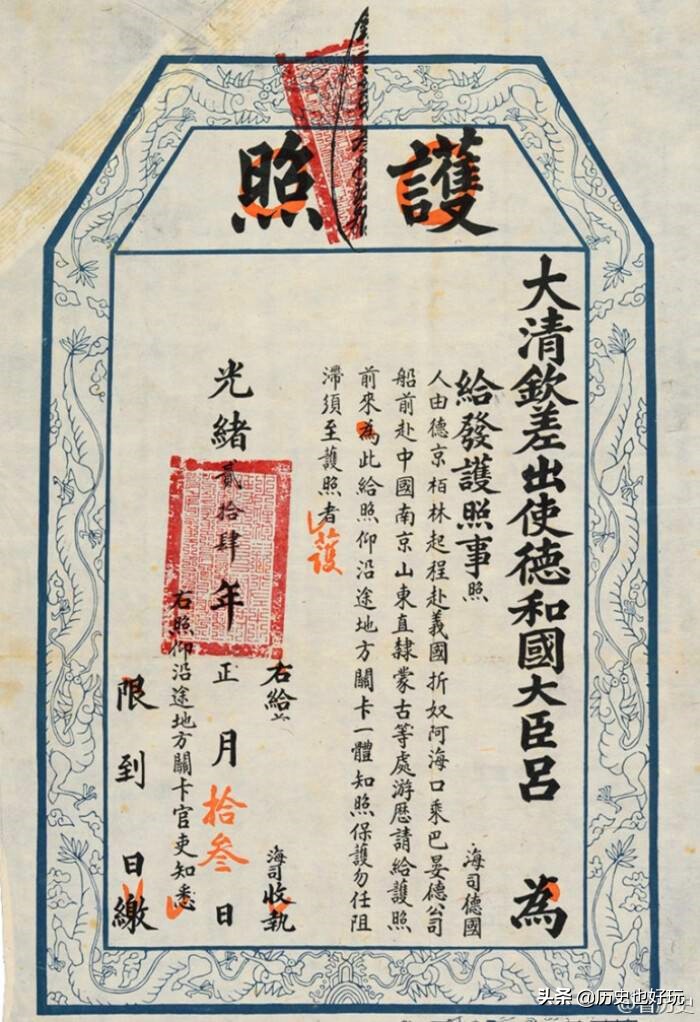 護照
大清欽差出使德和國大臣呂 為
給發護照事照 海司德國
人由德京柏林起程赴義國折奴阿海口乘巴晏德公司
船前赴中國南京山東直隸蒙古等處游歷請給護照
前來為此給照仰沿途地方關卡一體知照保護勿任阻
滯須至護照者
護
右給 海司收執
光緒貳拾肆年正月拾叁日
右照仰沿途地方關卡官吏知悉
限到 日繳
头条 @历史也好玩